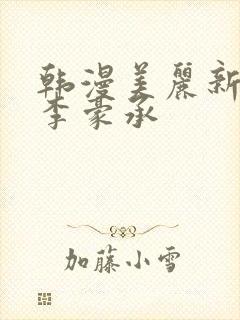 韩漫美麗新
李豪承
加藤小雪